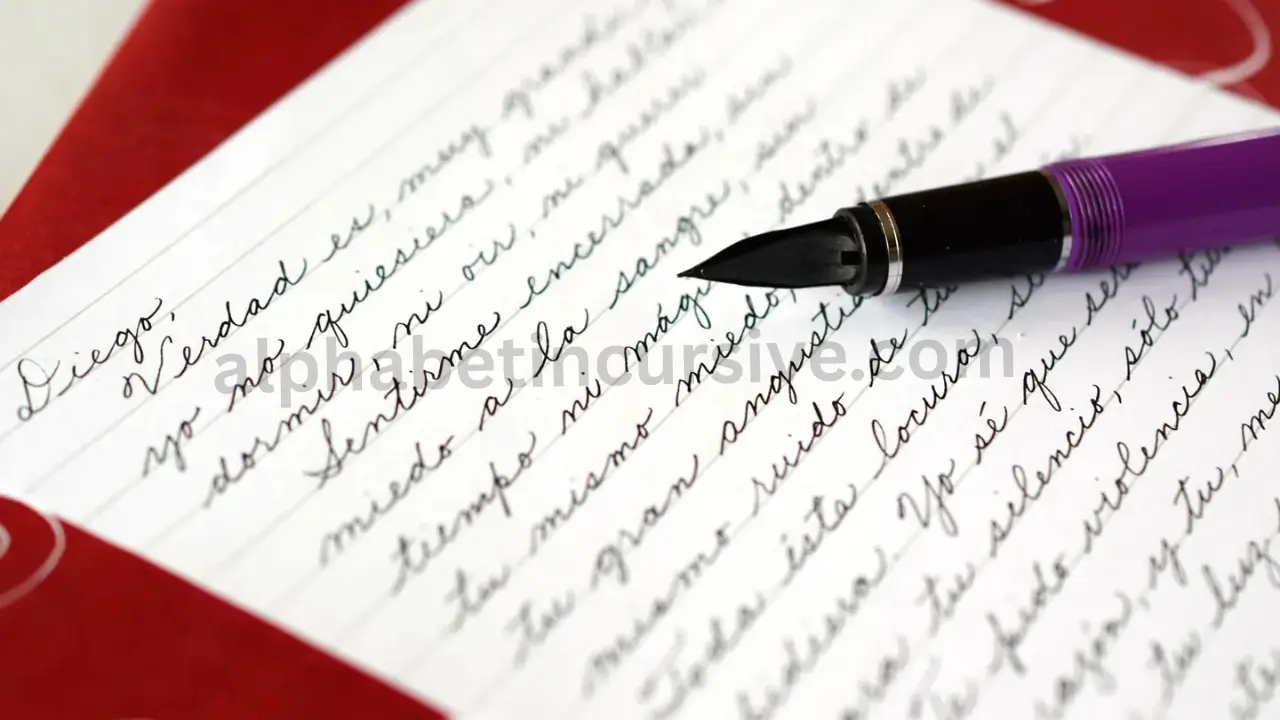 Diego,
Verdad es, muy grande
yo no quisiera, ni hablar
dormir, ni oir, ni querer
Sentirme encerrada, sin
miedo a la sangre, sin
tiempo ni dentro de
tu mismo miedo, dentro de
tu gran angustia el
mismo ruido de tu
Toda ésta locura,
Yo sé que
tu silencio, sólo
Te pido violencia, en
y tu, me
tu luz
alphabetincursive.com